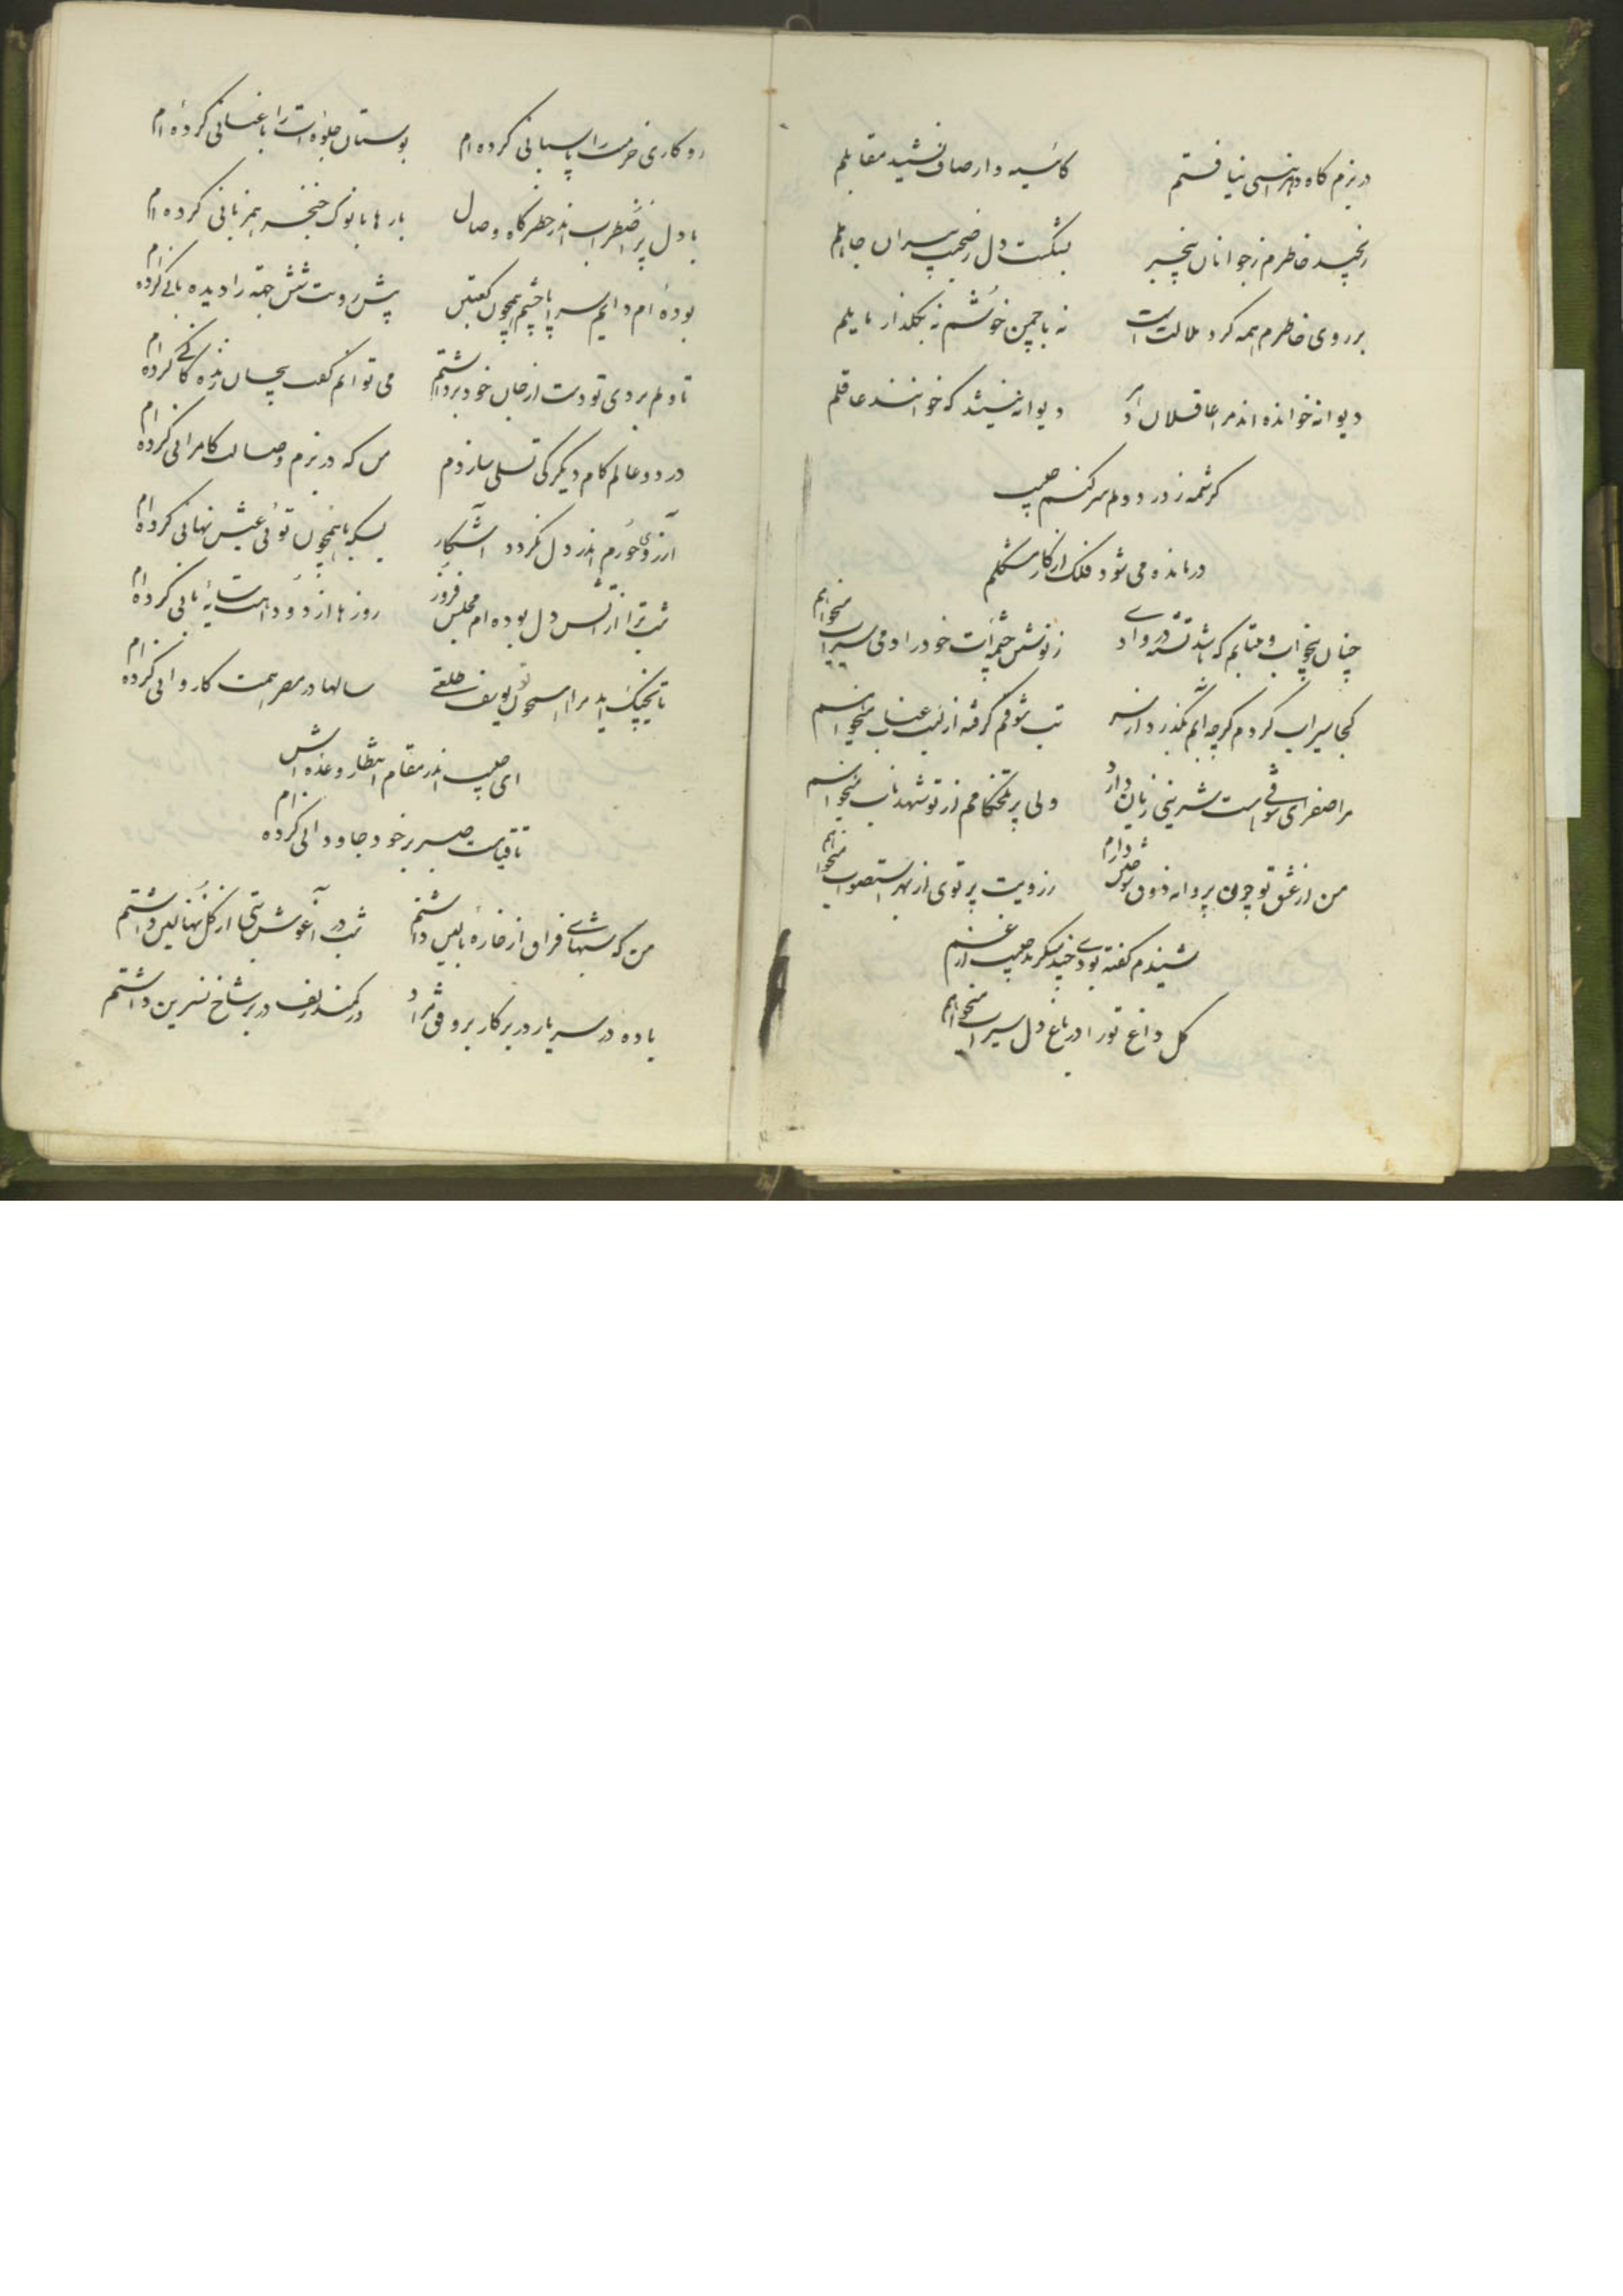 در بزم کاه دهر انسی نیافتم کائینه وار صاف نشیند مقابلم
رنجید خاطرم ز جوانان بیخبر بشکست دل ز صحبت پیران جاهلم
بر روی خاطرم همه کرد ملالت است نه با چمن خوشم نه بکلذار مایلم
دیوانه خوانده اند مرا عاقلان دیوانه نیستند که خوانند عاقلم
کر شمه ز درد دلم سر کنم حبیب
درمانده می شود فلک از کار مشکلم
چنان بیخواب و بیتابم که باشد تشنه در وادی ز نوش چشمه ات خود را دمی سیراب میخواهم
کجا سیراب کردم کرچه آبم بگذرد از سر تب شوقم کرفته از لبت عناب میخواهم
مرا صفرای شوقی است شیرینی زیان دارد ولی پر تلخکامم از تو شهد ناب میخواهم
من از عشق تو چون پروانه ذوق دارم ز رویت پرتوی از بهر استصواب میخواهم
شنیدم کفته بودی چند میکرید حبیب از غم
کل داغ تو را در باغ دل سیراب میخواهم
روزکاری خرمنت را پاسبانی کرده ام بوستان جلوه ات را باغبانی کرده ام
با دل پر اضطراب اندر خطرکاه وصال بارها با نوک خنجر همزبانی کرده ام
بوده ام دایم سراپا چشم همچون کعبتین پیش رویت شش جهة را دیده بانی کرده ام
تا دلم بردی تو دست از جان خود برداشتم می توانم کفت بیجان زندکانی کرده ام
در دو عالم کام دیکر کی تسلی سازدم من که در بزم وصالت کامرانی کرده ام
آرزوی حورم اندر دل نکردد آشکار بسکه با همچون توئی عیش نهانی کرده ام
شب ترا از آتش دل بوده ام مجلس فروز روزها از دود آهت سایه بانی کرده ام
تا بچنک آید مرا همچون تو یوسف طلعتی سالها در مصر همت کاروانی کرده ام
ای حبیب اندر مقام انتظار وعده اش
تا قیامت صبر بر خود جاودانی کرده ام
من که شبهای فراق از خاره بالین داشتم شب در آغوش بتی از کل نهالین داشتم
باده در سر یار در بر کار بر وفق مراد در کمند زلف در بر شاخ نسرین داشتم